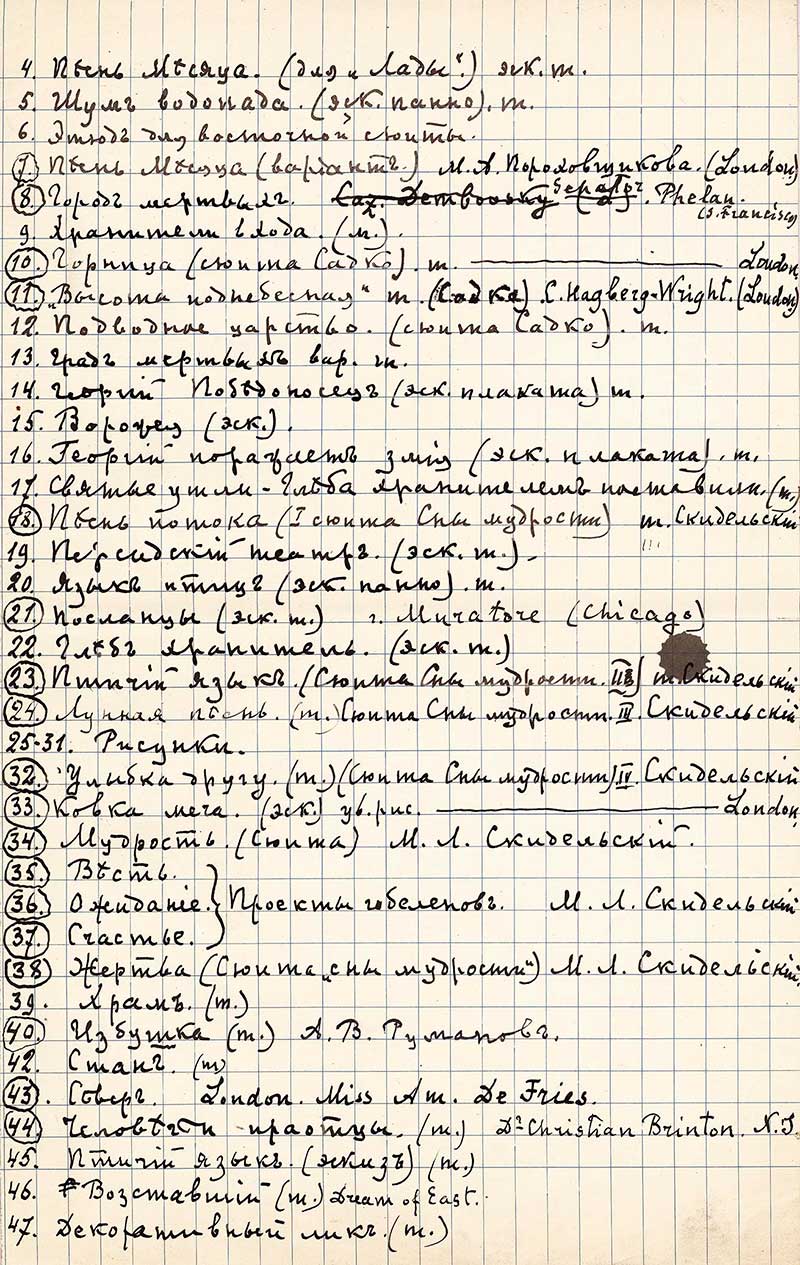 4. Пѣснь Мѣсяца. (для „Лады“.) эск. т.
5. Шумъ водопада. (эск. панно). т.
6. Этюдъ для восточной сюиты.
7. Пѣснь Мѣсяца (варіантъ.) М. А. Пороховщикова. (London)
8. Городъ мертвыхъ. Dembovsky Senator Phelan. (S. Francisco)
9. Хранители входа. (т.).
10. Горница (сюита Садко). т. London
11. „Высота поднебесная“ т. (Садко). C. Hagberg-Wright. (London)
12. Подводное царство. (сюита Садко). т.
13. Градъ мертвыхъ вар. т.
14. Георгій Побѣдоносецъ (эск. плаката) т.
15. Ворожея (эск.).
16. Георгій поражаетъ змія (эск. плаката). т.
17. Святые ушли - Глѣба хранителемъ поставили. (т.)
18. Пѣснь потока (I сюита Сны мудрости) т. Скидельскій
19. Персидскій театръ. (эск. т.).
20. Языкъ птицъ (эск. панно). т.
21. Посланцы (эск. т.) г. Muratore (Chicago)
22. Глѣбъ хранитель. (эск. т.)
23. Птичій языкъ. (Сюита Сны мудрости. II) т. Скидельскій
24. Лунная пѣснь. (т.) Сюита Сны мудрости. III. Скидельскій
25-31. Рисунки.
32. Улыбка другу. (т.) (Сюита Сны мудрости) IV. Скидельскій
33. Ковка меча. (эск.) ув. рис. London,
34. Мудрость. (Сюита) М. Л. Скидельскій.
35. Вѣсть.
36. Ожиданіе. Проекты гобеленовъ. М. Л. Скидельскій
37. Счастье.
38 Жертва (Сюита „сны мудрости“) М. Л. Скидельскій.
39. Храмъ. (т.)
40. Избушка (т.) А. В. Румановъ.
42. Станъ. (т)
43. Северъ. London. Miss Am. De Fries.
44. Человѣчьи праотцы. (т.) Dr Christian Brinton. N.J.
45. Птичій языкъ. (эскизъ) (т.)
46. Возставшій (т.) Dream of East.
47. Декоративный ликъ. (т.)